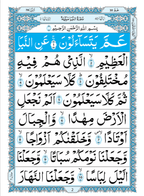 بِسْمِ اللهِ الرَّحْمٰنِ الرَّحِيْمِ
عَمَّ يَتَسَآءَلُوْنَ عَنِ النَّبَاِ
الْعَظِيْمِ الَّذِيْ هُمْ فِيْهِ
مُخْتَلِفُوْنَ كَلَّا سَيَعْلَمُوْنَ
ثُمَّ كَلَّا سَيَعْلَمُوْنَ اَلَمْ نَجْعَلِ
الْاَرْضَ مِهٰدًا وَّالْجِبَالَ
اَوْتَادًا وَّخَلَقْنٰكُمْ اَزْوَاجًا
وَّجَعَلْنَا نَوْمَكُمْ سُبَاتًا وَّجَعَلْنَا
الَّيْلَ لِبَاسًا وَّجَعَلْنَا النَّهَارَ